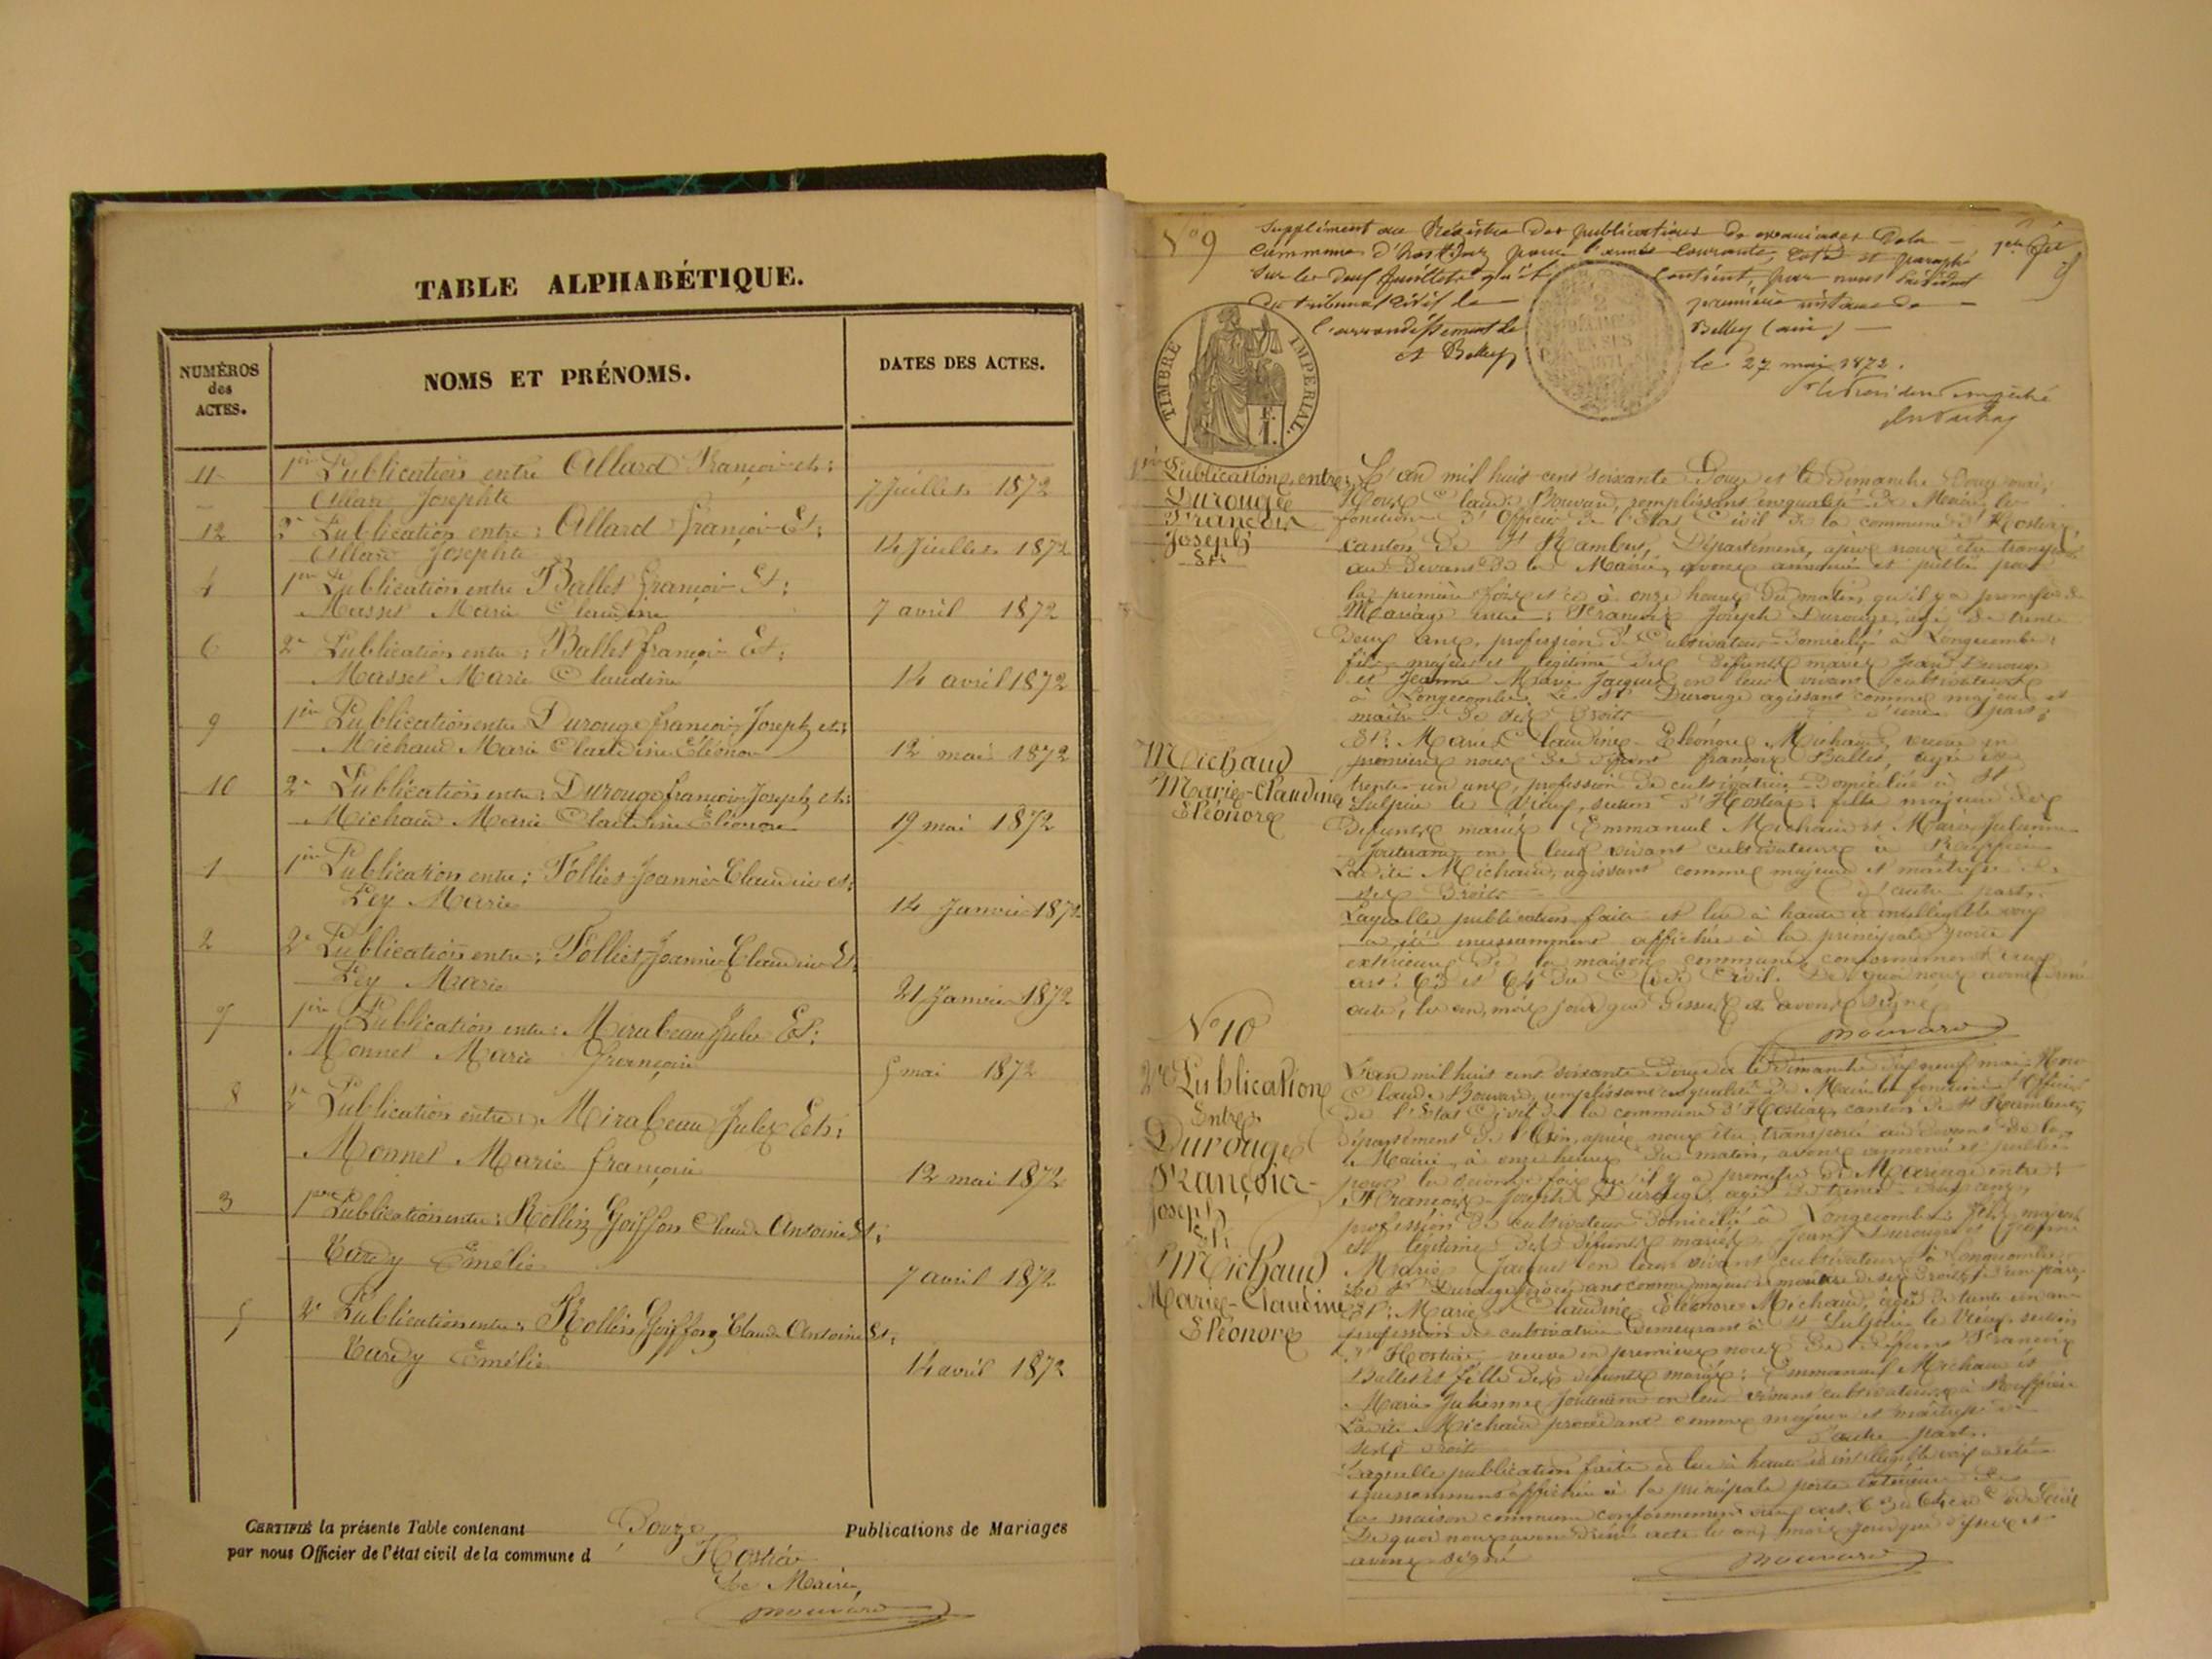 TABLE ALPHABÉTIQUE.
NUMÉROS
des
ACTES.
NOMS ET PRÉNOMS.
DATES DES ACTES.
11 1re Publication entre Allard François et:
Allard Josephte 7 Juillet 1872
12 2e Publication entre: Allard François Et:
Allard Josephte 14 Juillet 1872
4 1re Publication entre Ballet François Et:
Masset Marie Claudine 7 avril 1872
6 2e Publication entre: Ballet François Et:
Masset Marie Claudine 14 avril 1872
9 1re Publication entre Durouge François Joseph et:
Michaud Marie Claudine Eléonore 12 mai 1872
10 2e Publication entre: Durouge François Joseph et:
Michaud Marie Claudine Eléonore 19 mai 1872
1 1re Publication entre: Folliet Joannès Claudius et:
Ley Marie 14 Janvier 1872
2 2e Publication entre: Folliet Joannès Claudius Et:
Ley Marie 21 Janvier 1872
7 1re Publication entre: Mirabeau Jules Et:
Monnet Marie Françoise 5 mai 1872
8 2e Publication entre: Mirabeau Jules Et:
Monnet Marie françoise 12 mai 1872
3 1re Publication entre: Rollin Goiffon Claude Antoine Et:
Tardy Emélie 7 avril 1872
5 2e Publication entre: Rollin Goiffon Claude Antoine Et:
Tardy Emélie 14 avril 1872
CERTIFIÉ la présente Table contenant Douze Publications de Mariages
par nous Officier de l'état civil de la commune d Hostiaz
Le Maire,
Bouvard
No 9
Supplément au Registre des publications de mariages de la
commune d'hostiaz pour l'année courante, coté et paraphé
sur les deux feuillets qu'il contient, par nous Président
du tribunal civil de première instance de
l'arrondissement de Belley (ain)
le 27 mai 1872.
TIMBRE IMPERIAL.
2
DÉCIMES
EN SUS
1871
1re Publication entre:
Durouge
François
Joseph
Et:
Michaud
Marie-Claudine
Eléonore
L'an mil huit cent soixante Douze et le Dimanche Douze mai,
Nous Claude Bouvard, remplissant en qualité de Maire les
fonctions d'Officier de l'Etat Civil de la commune d'Hostiaz,
canton de St Rambert, Département, après nous être transporté
au devant de la Mairie, avons annoncé et publié pour
la première fois et ce à onze heures du matin, qu'il y a promesse de
Mariage entre: François Joseph Durouge, agé de trente
deux ans, profession de Cultivateur Domicilié à Longecombe:
fils majeur et légitime des défunts mariés Jean Durouge
et Jeanne Marie Jacquet en leur vivant cultivateurs
à Longecombe. Le St Durouge agissant comme majeur et
maître de ses Droits d'une part;
Et: Marie Claudine Eléonore Michaud, veuve en
premières noces de défunt françois Ballet, agée de
trente un ans, profession de cultivatrice Domiciliée à St
Sulpice le Vieux, section d'Hostiaz; fille majeure des
Défunts mariés Emmanuel Michaud et Marie Julienne
en leur vivant cultivateurs à Ruffieu
Ladite Michaud, agissant comme majeure et maîtresse de
ses Droits d'autre part.
Laquelle publication faite et lue à haute et intelligible voix
a été incessamment affichée à la principale porte
extérieure de la maison commune conformément aux
art: 63 et 64 du Code Civil. De quoi nous avons dressé
acte, les an, mois jour que dessus et avons signé
Bouvard
No 10
2e Publication
Entre
Durouge
François-
Joseph
Et:
Michaud
Marie-Claudine
Eléonore
L'an mil huit cent soixante Douze et le Dimanche dix neuf mai Nous
Claude Bouvard, remplissant en qualité de Maire les fonctions d'Officier
de l'Etat Civil de la commune d'Hostiaz, canton de St Rambert,
Département de l'Ain, après nous être transporté au devant de la
Mairie, à onze heures du matin, avons annoncé et publié
pour la seconde fois qu'il y a promesse de Mariage entre:
François-Joseph Durouge, agé de trente deux ans,
profession de cultivateur Domicilié à Longecombe fils majeur
et légitime des défunts mariés Jean Durouge et Jeanne
Marie Jacquet en leur vivant cultivateurs à Longecombe.
Le St Durouge procédant comme majeur et maître de ses Droits, d'une part;
Et: Marie Claudine Eléonore Michaud, agée de trente un ans
profession de cultivatrice demeurant à St Sulpice le Vieux section
d'Hostiaz veuve en premières noces de défunt François
Ballet et fille des défunts mariés: Emmanuel Michaud et
Marie Julienne en leur vivant cultivateurs à Ruffieu
Ladite Michaud procédant comme majeure et maîtresse de
ses Droits d'autre part.
Laquelle publication faite et lue à haute et intelligible voix a été
incessamment affichée à la principale porte extérieure de
la maison commune conformément aux art. 63 et 64 du Code Civil
De quoi nous avons dressé acte les an, mois jour que dessus et
avons signé
Bouvard